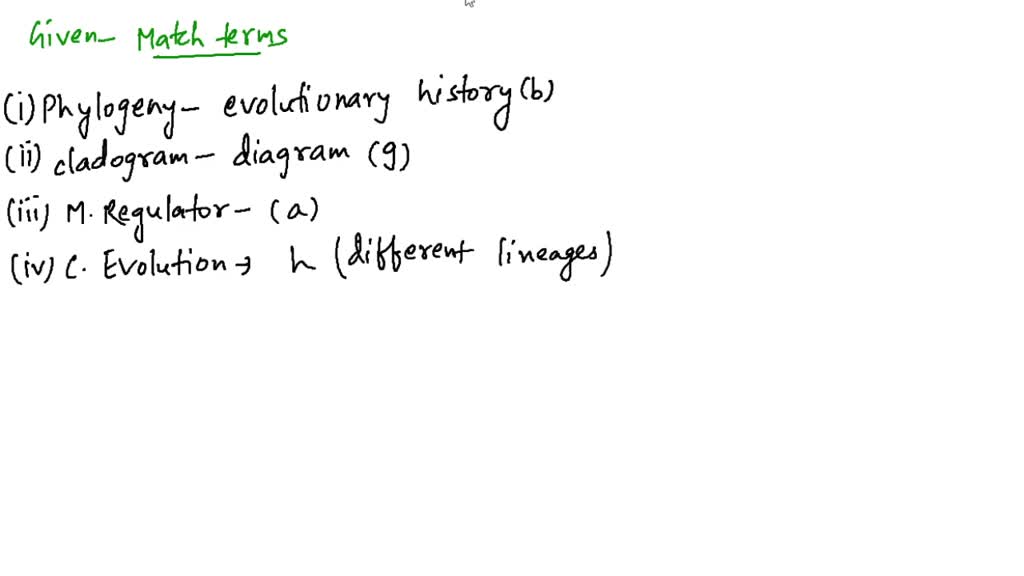 Given- Match terms
(i) Phylogeny- evolutionary history (b)
(ii) cladogram- diagram (g)
(iii) M. Regulator- (a)
(iv) C. Evolution → h (different lineages)